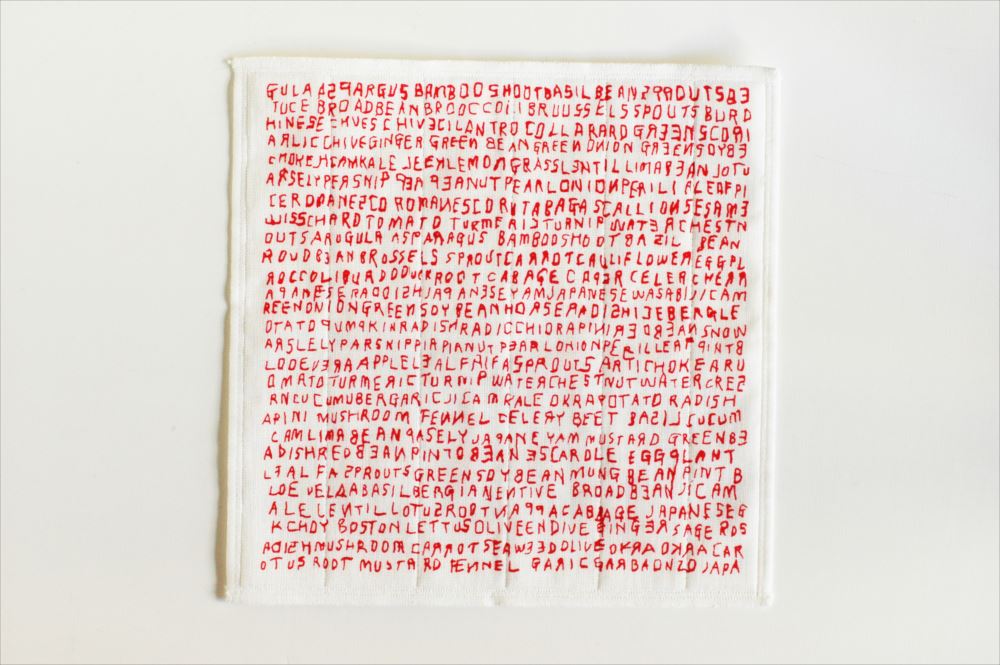 GULA ASPARGUS BAMBOO SHOOTBASILBEANSPROUTSBE
TUCE BROADBEANBROOCCOLIIBRUUSSELSSPOUTSBURD
HINESE CHVES CHIVECILANTRO COLLARARD GREENSCORI
ARLICCHIVEGINGER GREEN BEANGREENONION GREENSOYBE
LEMONGRASSLENTILLIMABEANJOTU
ARSELYPERSNIP PEAPEANUTPEARLONIONPERILILEAFPI
CERDOANESCO ROMANESCORUTABAGASCALLIONSESAME
WISSCHARDTOMATO TURMERICTURNIPWATERCHESTN
OUTSARUGULA ASPARAGUS BAMBOOSHOOTBAZIL BEAN
ROUDBEANBROSSELS SPROUTCARROTCAULIFLOWEREGGPL
ROCCOLIBURDODUCKROOTCABAGE CAPERCELERCHERR
APANESERADDISHJAPANESEYAMJAPANESEWASABIJICAM
REENONIONGREENSOYBEANHORSERADISHICEBERGLE
OTATOPUMPKINRADISHRADICCHIORAPINIREDBEANSNOW
ARSLELYPARSNIPPIAPIANUTPEARLONIONPERILLEAFPINTB
LOOEVERAAPPLELEALFALFASPROUTSARTICHOKEARU
OMATOTURMERICTURNIPWATERCHESTNUTWATERCRES
RNCUCUMUBERGARICJICAMRALEOKRAPOTATORADISH
APINI MUSHROOM FENNEL CELERY BEET BASILCUCUM
CAMLIMABEANPASELYJAPANEYAM MUSTARD GREENBE
ADISHREDBEANPINTOBEANESCAROLE EGGPLANT
LEALFASPROUTSGREENSOYBEANMUNGBEANPINTB
LOE VELAABASILBERGIANENTIVE BROADBEANJICAM
ALELENTILLOTUSROOTNAPPACABBAGE JAPANESEEG
KCHOY BOSTONLETTUSOLIVEENDIVE GINGERSAGE ROS
ADISHMUSHROOM CARROTSEAWEEDOLIVEOKRAOKRACAR
OTUSROOT MUSTARD FENNEL GARICGARBAONZOJAPA